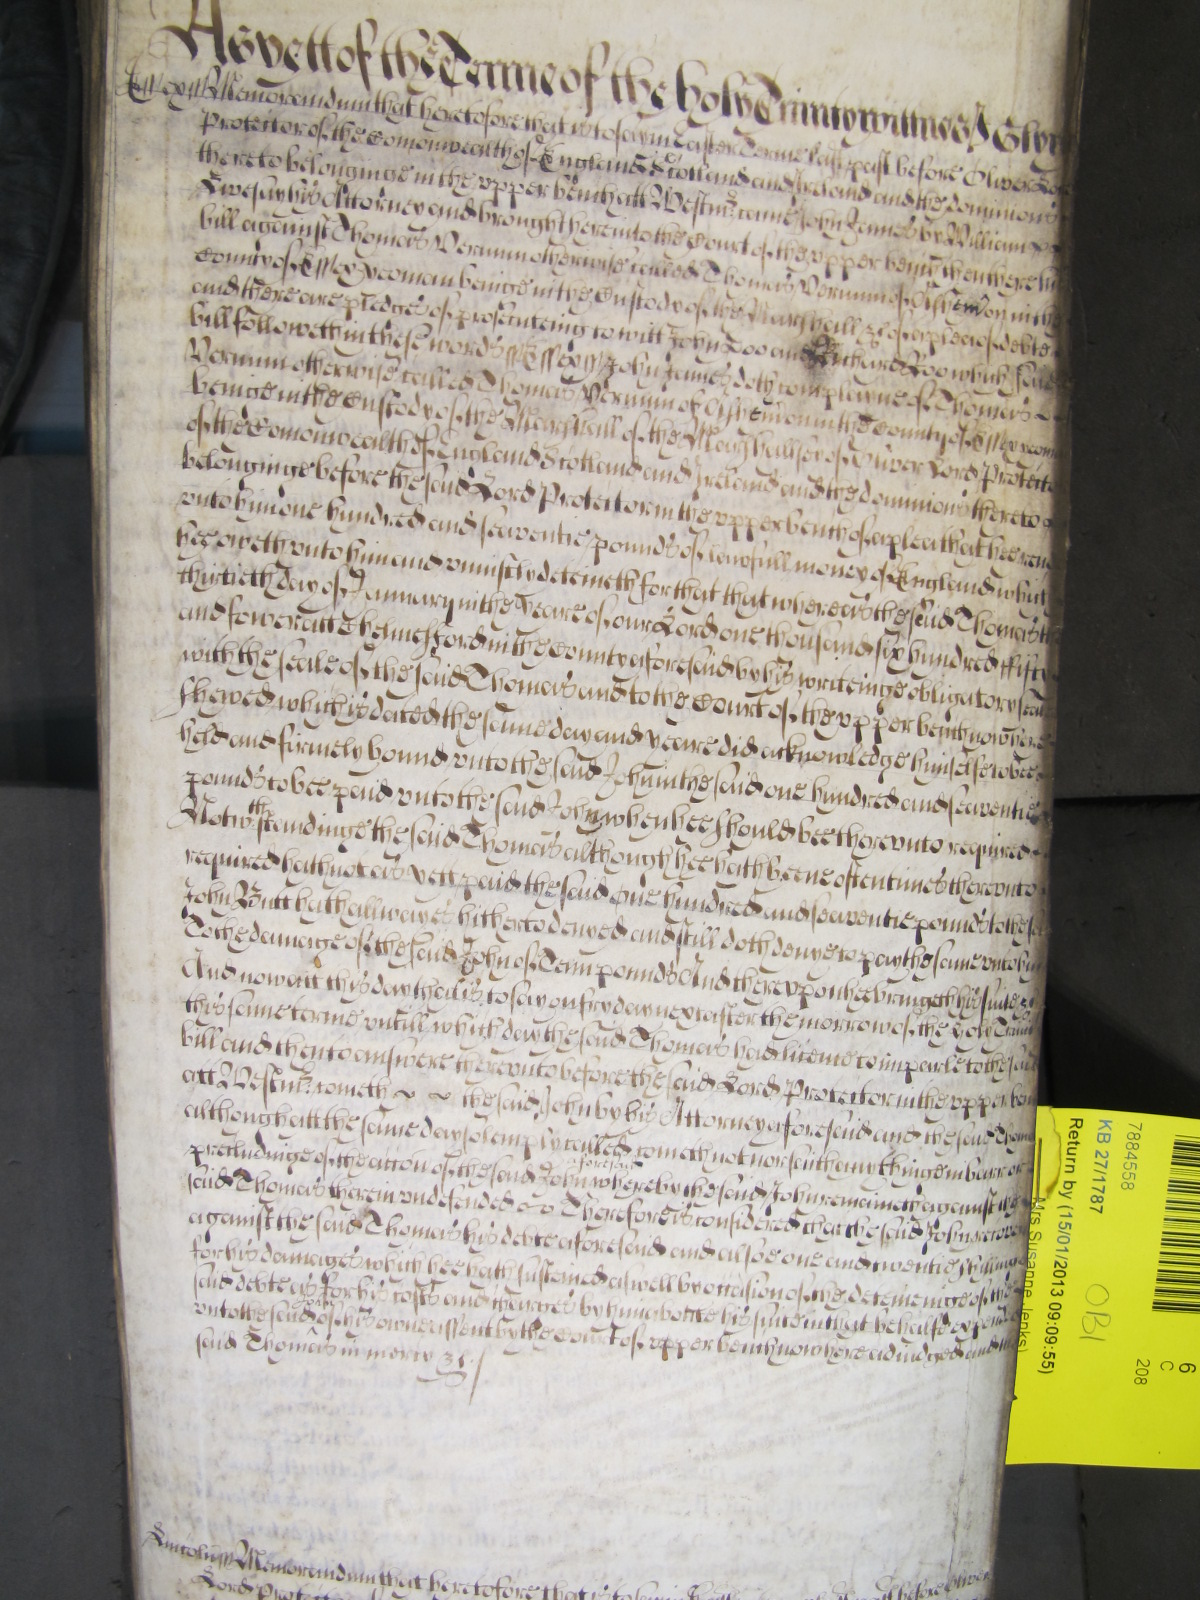 As yett of the Terme of the holy Trinity wittnes J Glyn
Essex ss Memorandum that heretofore that is to say in Easter Terme last past before Oliver Lord
Protector of the Comonwealth of England Scotland and Ireland and the dominions
thereto belonginge in the upper bench att Westmr. came John James by William
his Attorney and brought here into the Court of the upper bench then there his
bill against Thomas Vernum otherwise called Thomas Vernum of in the
County of Essex yeoman beinge in the Custody of the Marshall &c of a plea of debte
and there are pledges of prosecuteing to witt John Doo and Richard Roo which said
bill followeth in these words ss Essex ss John James doth complayne of Thomas
Vernum otherwise called Thomas Vernum of in the County of Essex yeom
beinge in the Custody of the Marshall of the Marshallsey of Oliver Lord Protecto
of the Comonwealth of England Scotland and Ireland and the dominions thereto
belonginge before the said Lord Protector in the upper bench of a plea that hee rend
unto him one hundred and seaventie pounds of lawfull money of England which
hee oweth unto him and uniustly deteineth for that that whereas the said Thomas the
thirtieth day of January in the yeare of our Lord one thousand six hundred fifty
and fower att Chelmesford in the County aforesaid by his writeinge obligatory seal
with the seale of the said Thomas and to the Court of the upper bench now here
shewed which is dated the same day and yeare did acknowledge himselfe to bee
held and firmely bound unto the said John in the said one hundred and seaventie
pounds to bee paid unto the said John when hee should bee thereunto required
Notwthstandinge the said Thomas although hee hath beene oftentimes thereunto
required hath not as yett paid the said one hundred and seaventie pounds to the s
John Butt hath allwayes hitherto denyed and still doth denye to pay the same unto him
To the damage of the said John of Tenn pounds And thereupon hee bringeth his suite &c
And now att this day that is to say on fryday next after the morrow of the holy Trini
this same terme untill which day the said Thomas had licence to imparle to the said
bill and then to answere thereunto before the said Lord Protector in the upper ben
att Westmr. cometh ~ ~ the said John by his Attorney aforesaid and the said Thom
although att the same day solemply called cometh not nor saith any thinge in barr or
precludinge of the accion of the said John aforesaid whereby the said John remaineth against the
said Thomas therein undefended &c Therefore is considered that the said John recover
against the said Thomas his debte aforesaid and alsoe one and twentie shillings
for his damages which hee hath sustained aswell by occasion of the deteininge of the
said debte as for his costs and charges by him about his suite in that behalfe expended
unto the said John of his owne assent by the Court of upper bench now here adiudged and the
said Thomas in mercy &c
ss Memorandum that heretofore that is to say in before Oliver
Lord Protect
7884558
KB 27/1787
Return by (15/01/2013 09:09:55)
Mrs Susanne Jenks)
OBI
6
C
208